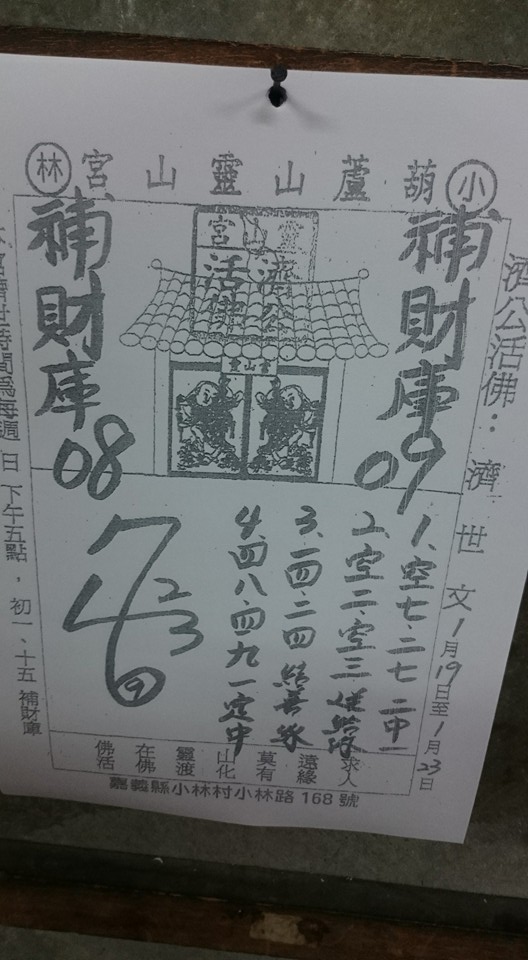 小葫蘆山靈山宮林
濟公活佛：濟世文1月19日至1月23日
補財庫09
靈山宮
濟公
活佛
靈山宮
補財庫08
1、空七、二七 二中一
2、空二、空三
3、一四、二四
4、四八、四九一定中
佛在靈山莫遠求
活佛渡化有緣人
嘉義縣小林村小林路168號
宮濟世時間為每週日下午五點，初一、十五補財庫